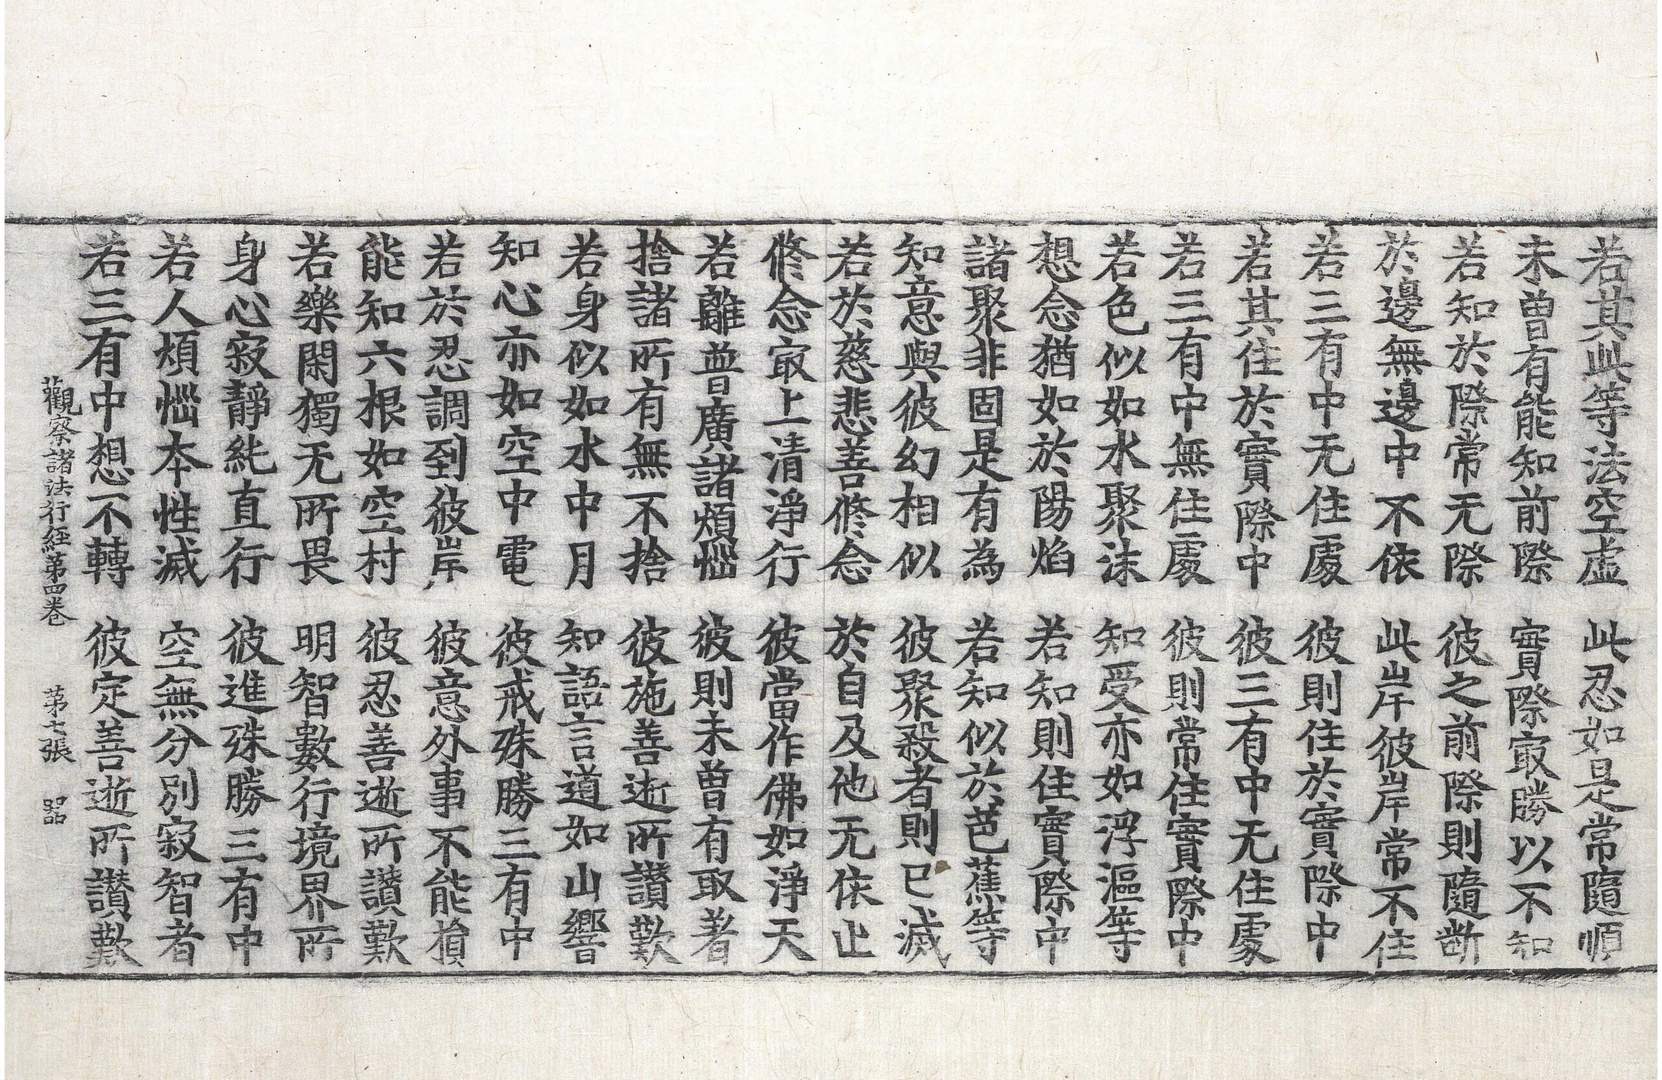 若其此等法空虛　此忍如是常隨順
未曾有能知前際　實際㝡勝以不知
若知於際常无際　彼之前際則隨斷
於邊無邊中不依　此岸彼岸常不住
若三有中无住處　彼則住於實際中
若其住於實際中　彼三有中无住處
若三有中無住處　彼則常住實際中
若色似如水聚沫　知受亦如浮漚等
想念猶如於陽焰　若知則住實際中
諸聚非固是有為　若知似於芭蕉等
知意與彼幻相似　彼聚殺者則已滅
若於慈悲善修念　於自及他无依止
修念㝡上清淨行　彼當作佛如淨天
若離普廣諸煩惱　彼則未曾有取著
捨諸所有無不捨　彼施善逝所讚歎
若身似如水中月　知語言道如山響
知心亦如空中電　彼戒殊勝三有中
若於忍調到彼岸　彼意外事不能損
能知六根如空村　彼忍善逝所讚歎
若樂閑獨无所畏　明智數行境界所
身心寂靜純直行　彼進殊勝三有中
若人煩惱本性滅　空無分別寂智者
若三有中想不轉　彼定善逝所讚歎
觀察諸法行経第四巻　第七張　器